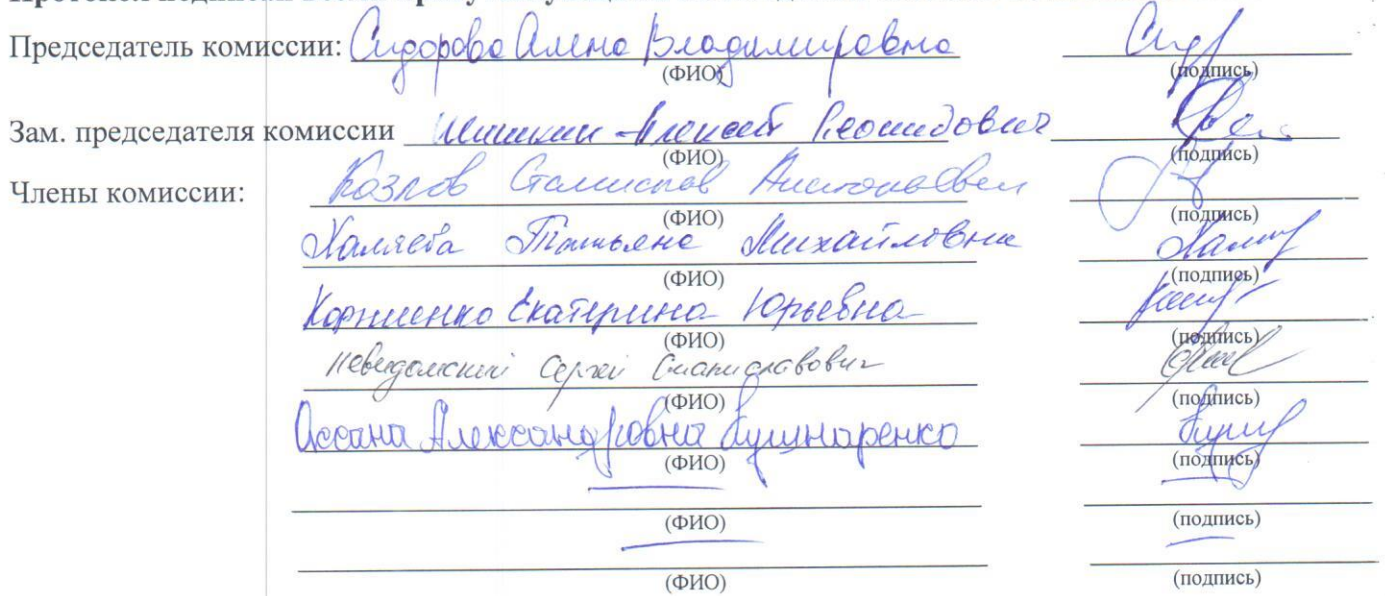 Председатель комиссии: Сидорова Алена Владимировна
(ФИО) (подпись)
Зам. председателя комиссии Шишкин Алексей Леонидович
(ФИО) (подпись)
Члены комиссии: Козлов Станислав
(ФИО) (подпись)
Халяева Татьяна Михайловна
(ФИО) (подпись)
Корниенко Екатерина Юрьевна
(ФИО) (подпись)
Неведомский Сергей Станиславович
(ФИО) (подпись)
Оксана Александровна Кушнаренко
(ФИО) (подпись)
(ФИО) (подпись)
(ФИО) (подпись)